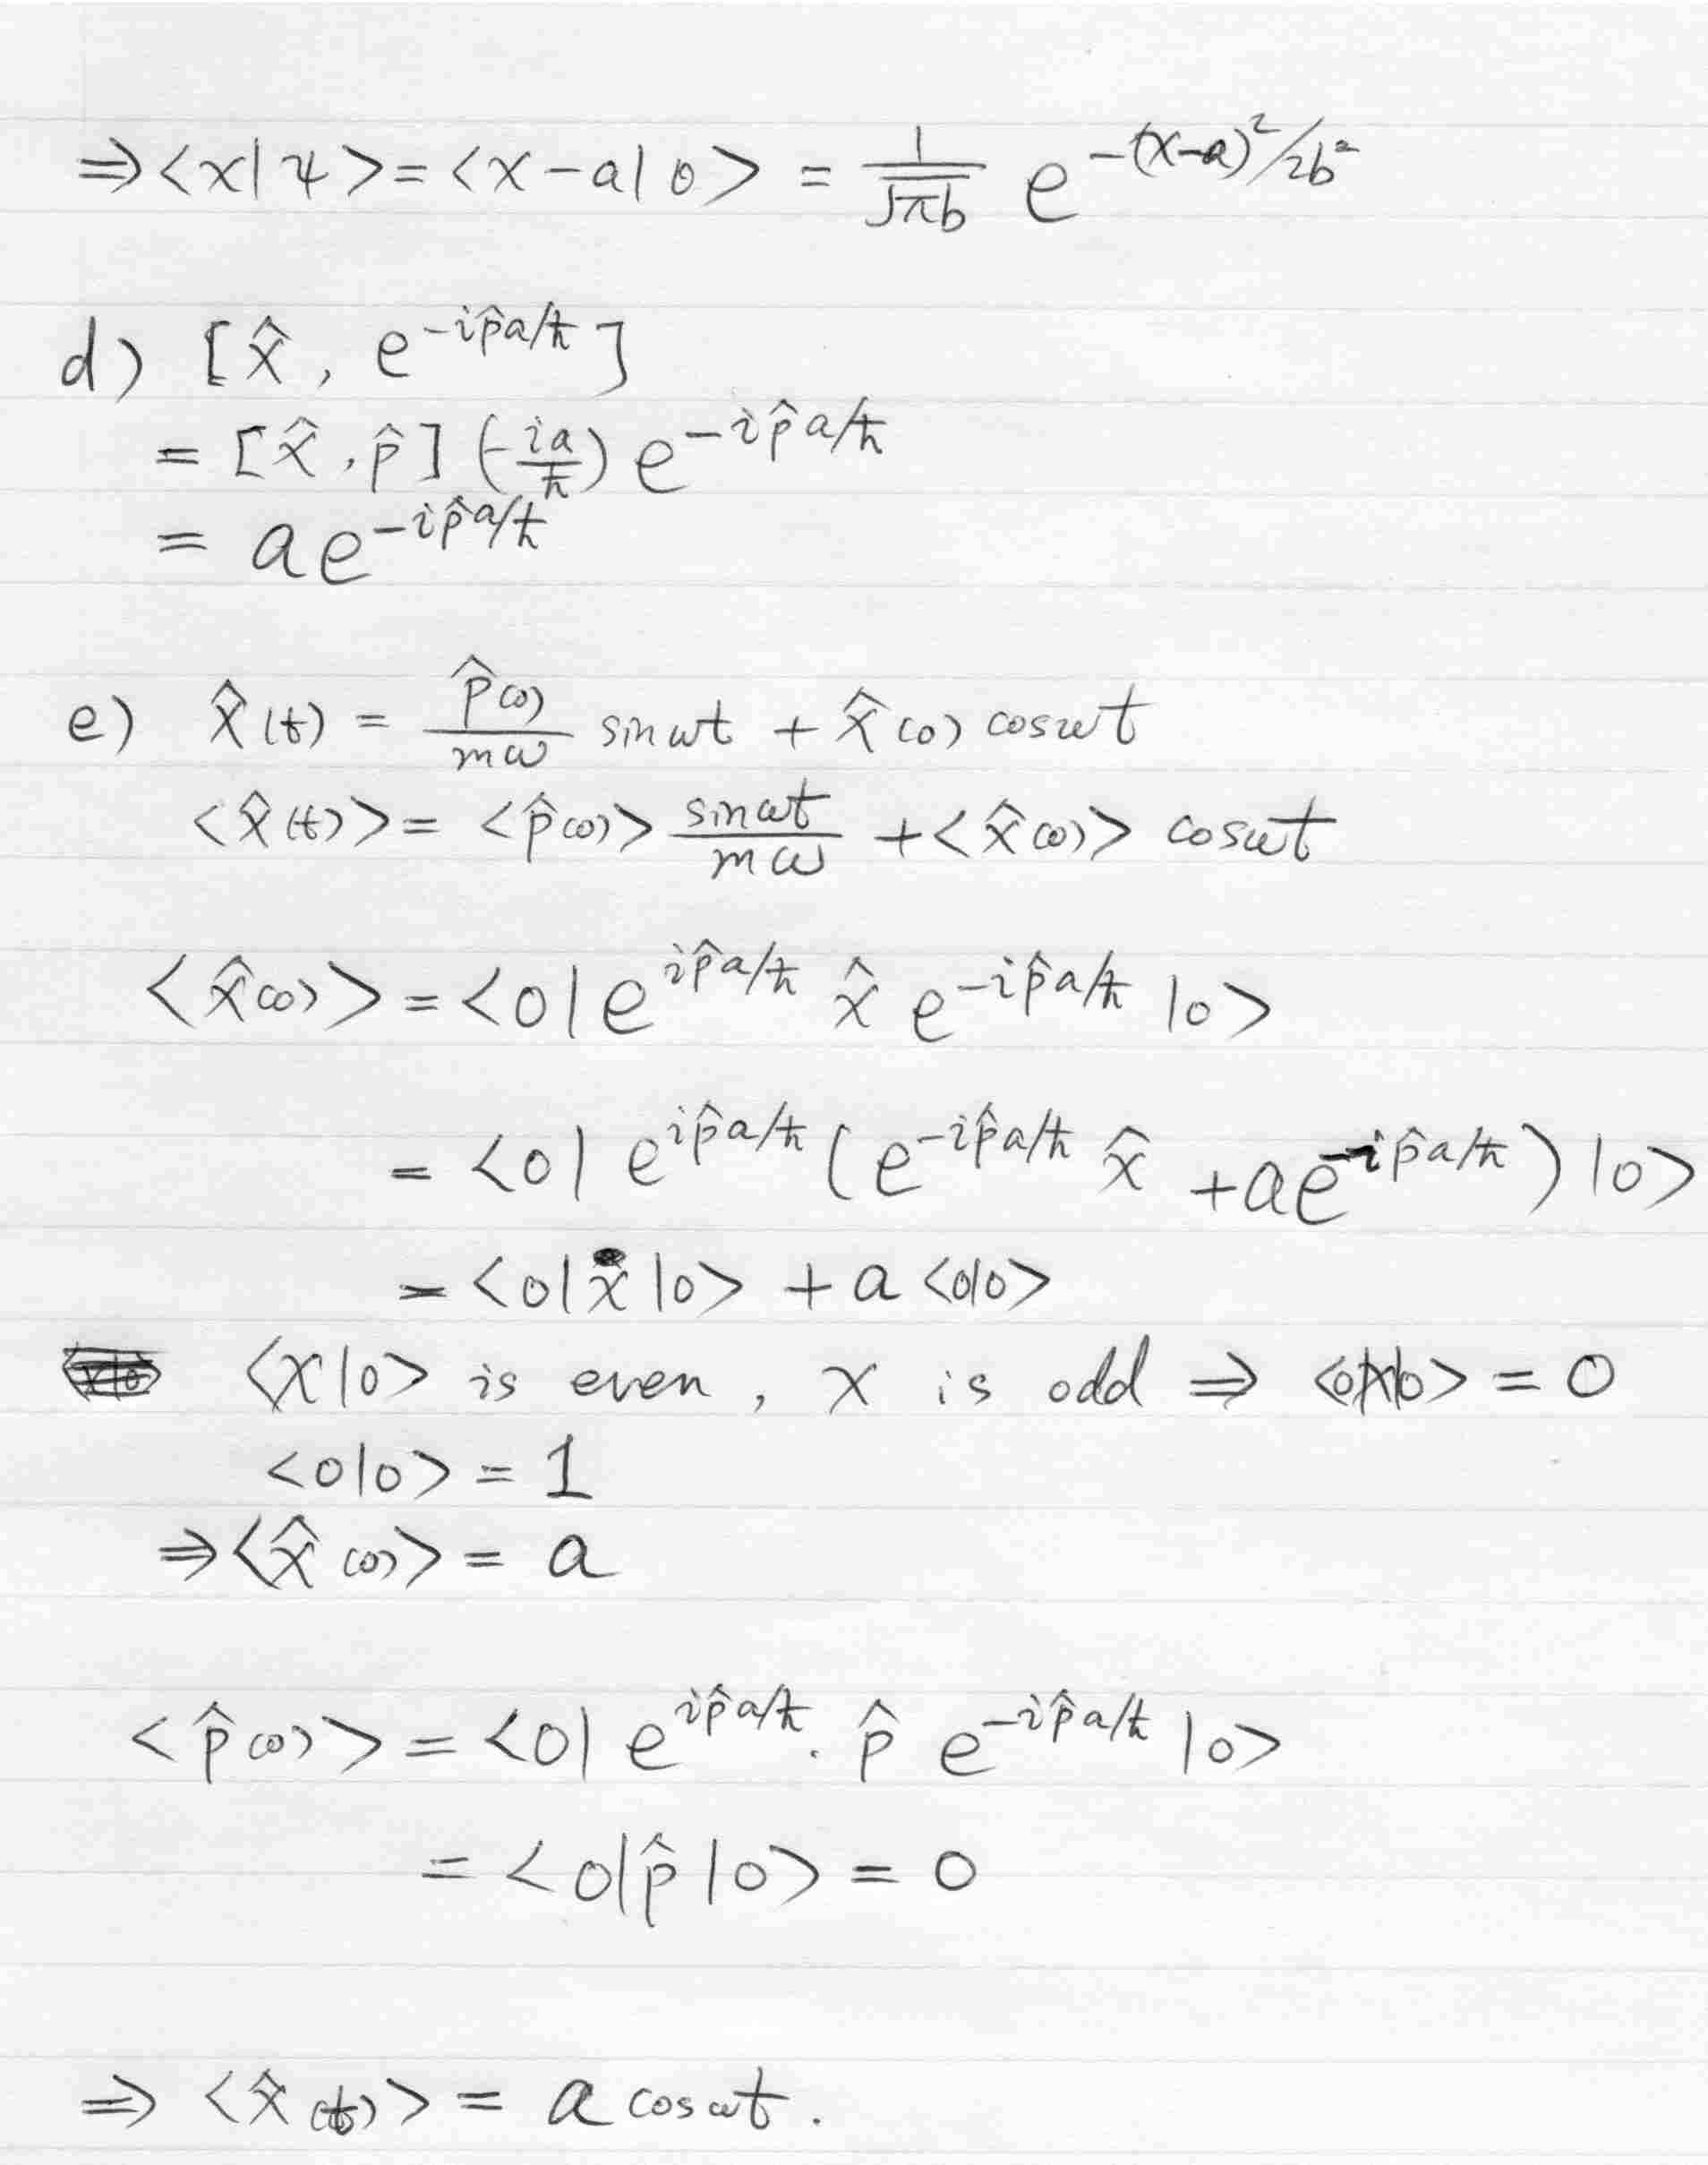 ⇒ <x|ψ> = <x-a|0> = 1/√πb e^{-(x-a)²/2b²}
d) [x̂, e^{-ip̂a/ħ}]
= [x̂, p̂] (-ia/ħ) e^{-ip̂a/ħ}
= a e^{-ip̂a/ħ}
e) x̂(t) = p̂(0)/mω sin ωt + x̂(0) cos ωt
<x̂(t)> = <p̂(0)> sin ωt/mω + <x̂(0)> cos ωt
<x̂(0)> = <0| e^{ip̂a/ħ} x̂ e^{-ip̂a/ħ} |0>
= <0| e^{ip̂a/ħ} (e^{-ip̂a/ħ} x̂ + a e^{-ip̂a/ħ}) |0>
= <0|x̂|0> + a <0|0>
<x|0> is even, x is odd ⇒ <0|x|0> = 0
<0|0> = 1
⇒ <x̂(0)> = a
<p̂(0)> = <0| e^{ip̂a/ħ} · p̂ e^{-ip̂a/ħ} |0>
= <0|p̂|0> = 0
⇒ <x̂(t)> = a cos ωt.